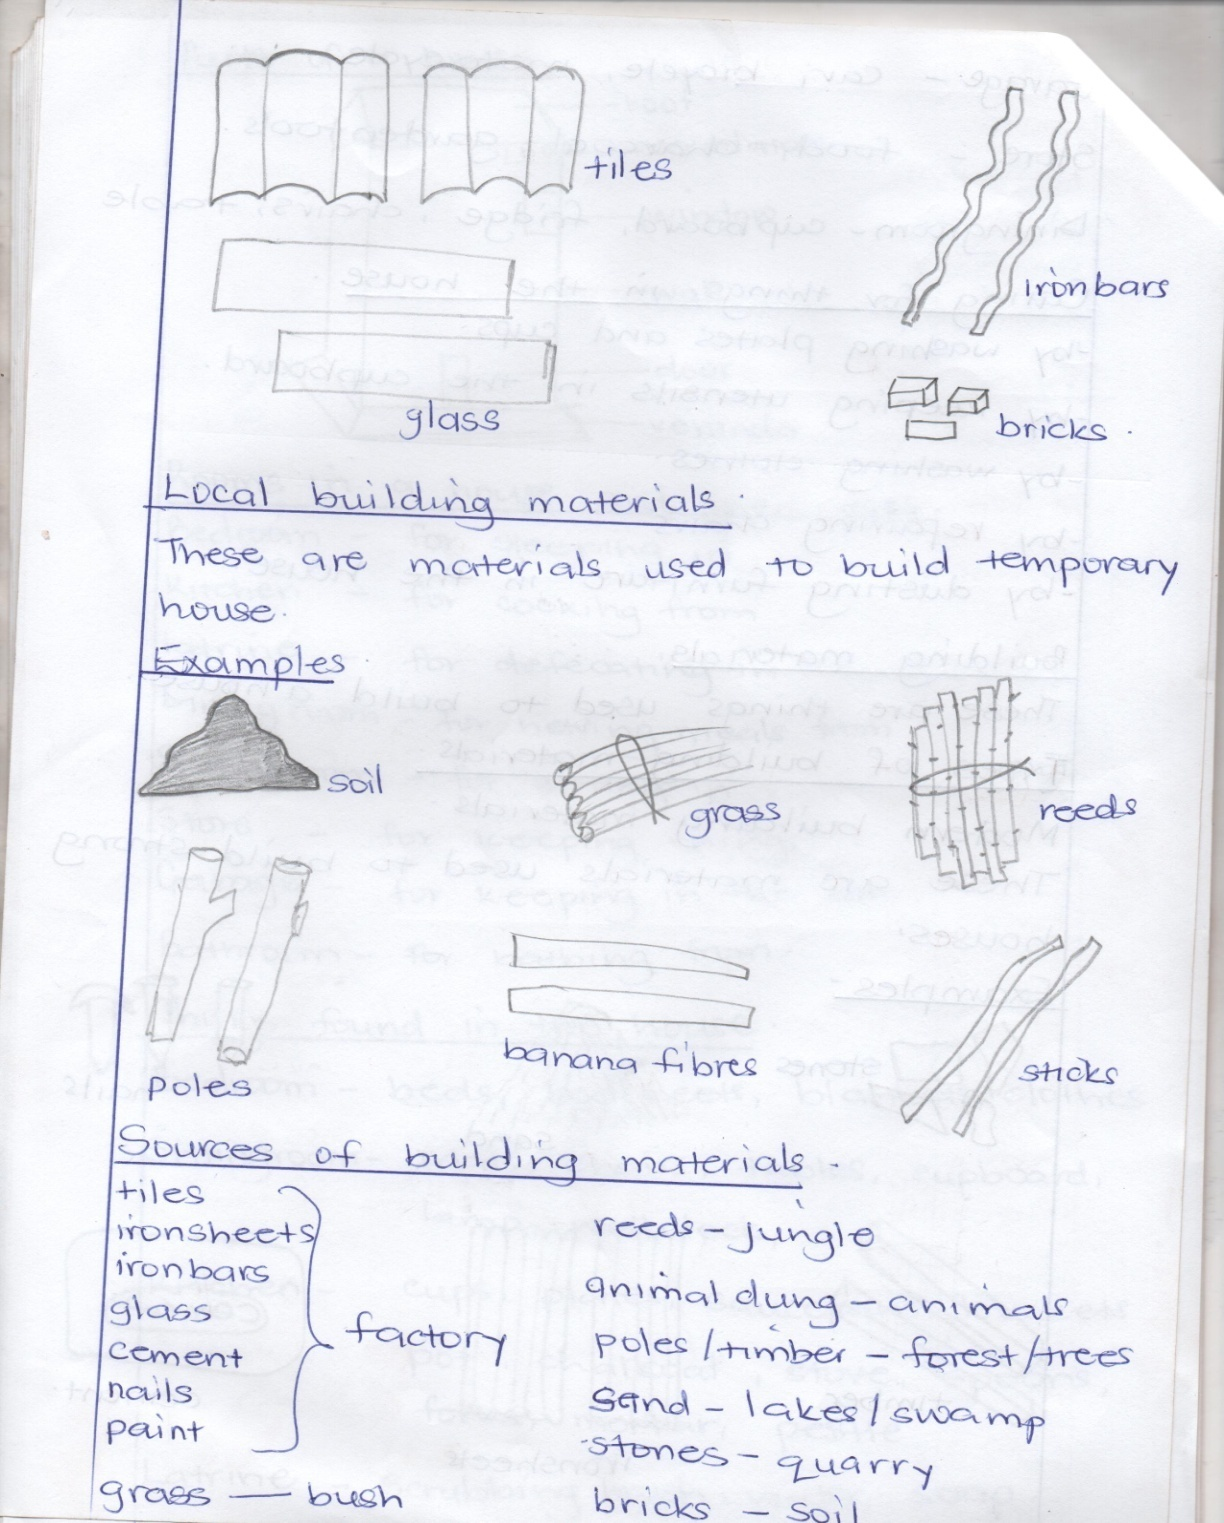 tiles
iron bars
glass
bricks.
Local building materials.
These are materials used to build temporary
house.
Examples.
soil
grass
reeds
poles
banana fibres
sticks
Sources of building materials.
tiles
ironsheets
iron bars
glass
cement
nails
paint
factory
grass — bush
reeds - jungle
animal dung - animals
poles / timber - forest/trees
sand - lakes / swamp
stones - quarry
bricks - soil